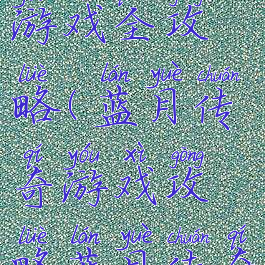 游戏全攻
lüè lán yuè chuán
略(蓝月传
qí yóu xì gōng
奇游戏攻
lüè lán yuè chuán qí
略蓝月传奇